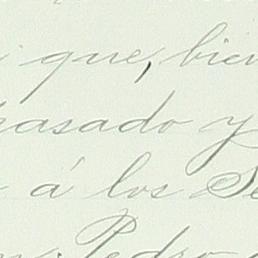 que, bien
pasado y
á los Se
Pedro